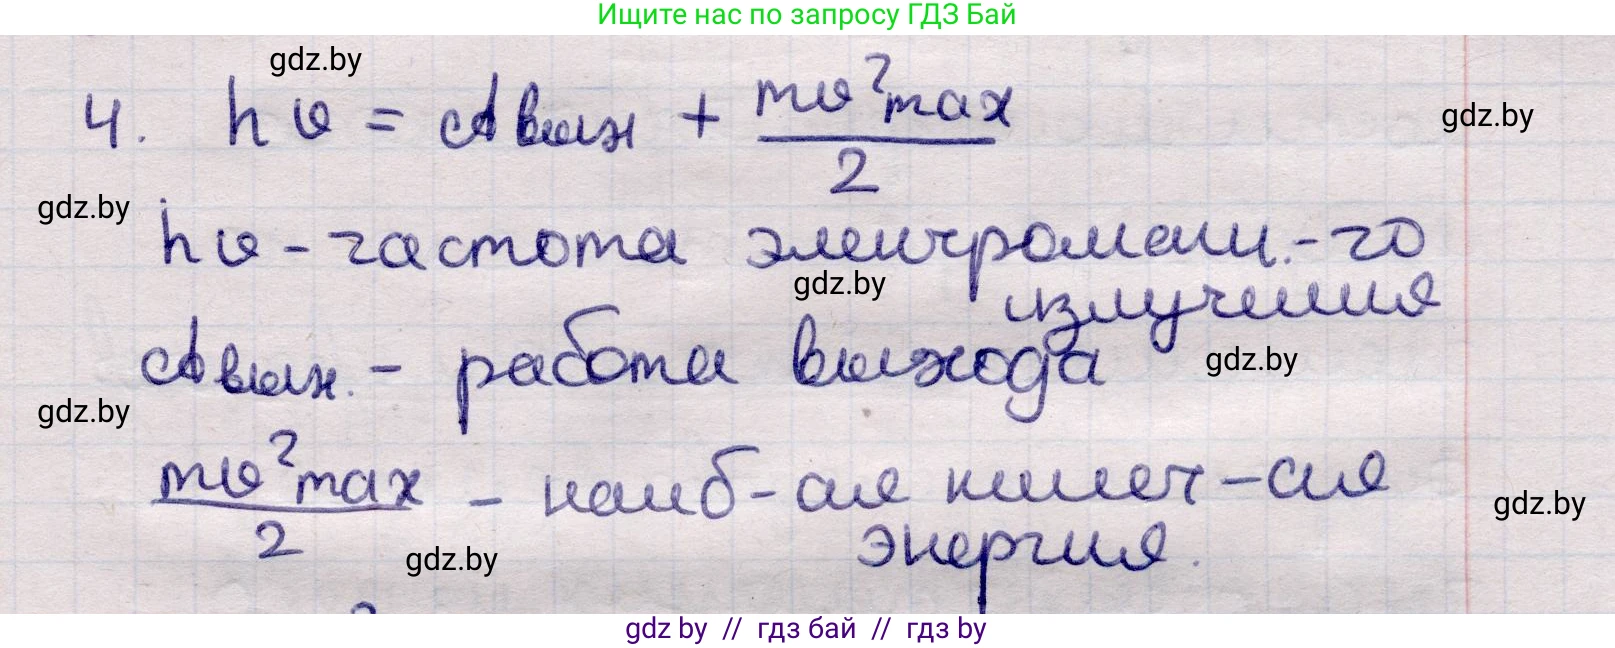 Ищите нас по запросу ГДЗ Бай
gdz.by
4. hυ = Aвых + mυ²max / 2
gdz.by
gdz.by
hυ - частота электромагн.-го
gdz.by
излучения
Aвых. - работа выхода
gdz.by
gdz.by
mυ²max / 2 - наиб-шая кинет-ская
gdz.by
энергия.
gdz.by
gdz by // гдз бай // гдз by